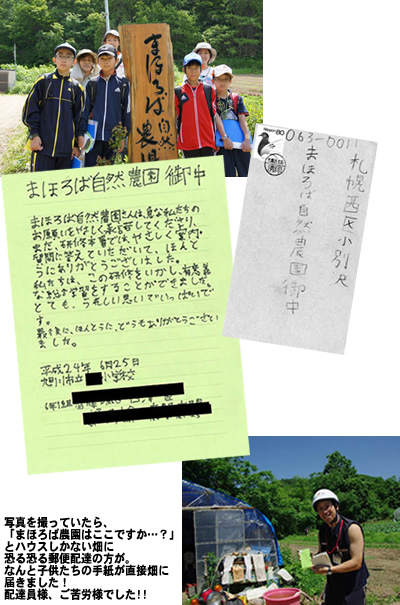 まほろば自然農園
063-0011
札幌西区小別沢
まほろば自然農園御中
まほろば自然農園 御中
まほろば自然農園さんは、急な私たちの
お願いをやさしく承諾してくださり、
また、研修本番では、やさしく案内・
質問に答えていただいて、ほんと
うにありがとうございました。
私たちは、この研修をいかし、有意義
な総合学習をすることができました。
とても、うれしい思いでいっぱいで
す。
最後に、ほんとうに、どうもありがとうござい
ました。
平成24年 6月25日
旭川市立 小学校
6年1組
写真を撮っていたら、
「まほろば農園はここですか…？」
とハウスしかない畑に
恐る恐る郵便配達の方が。
なんと子供たちの手紙が直接畑に
届きました！
配達員様、ご苦労様でした!!